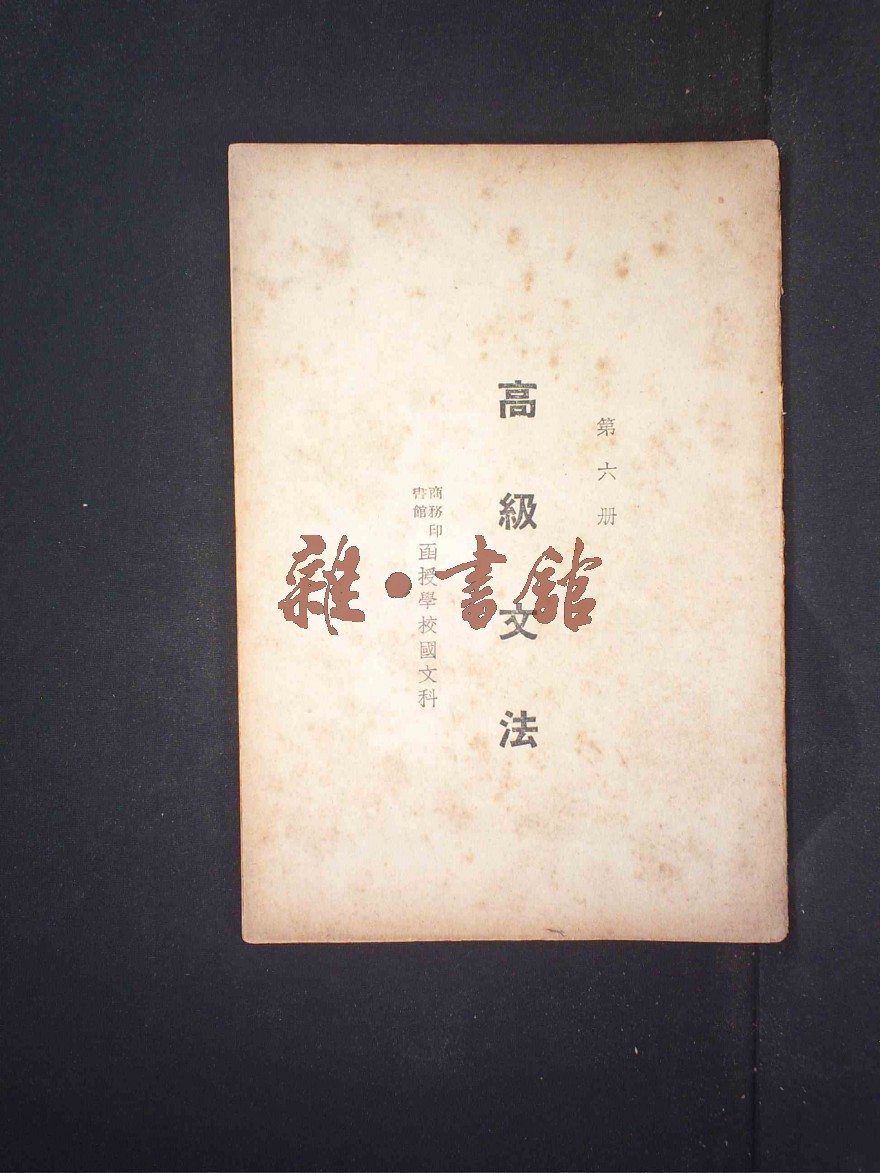 第六册
高級文法
商務印書館
函授學校國文科
雜·書館